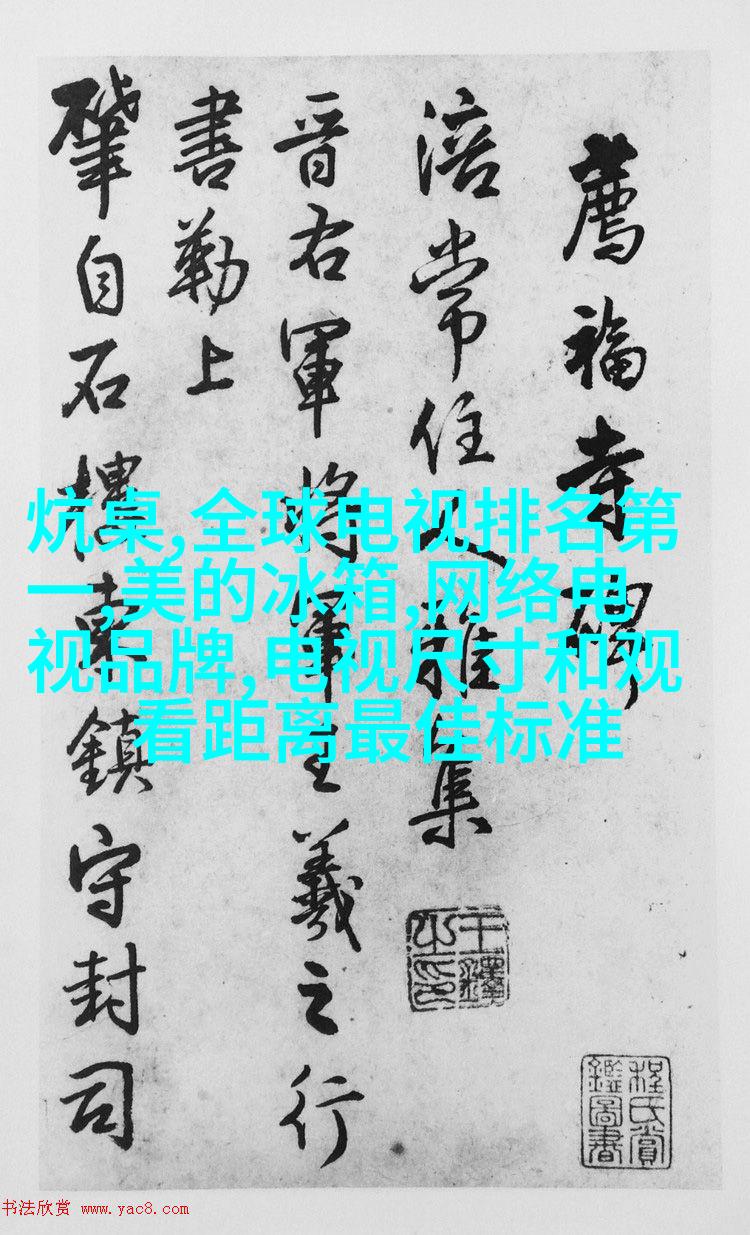 薦福寺碑
涪常住大雅集
晉右軍將軍王羲之行
書勒上
肇自石樓東鎮守封司
王鐸之印
程氏賞鑑圖書
炕桌,全球电视排名第
一,美的冰箱,网络电
视品牌,电视尺寸和观
看距离最佳标准
书法欣赏 www.yac8.com